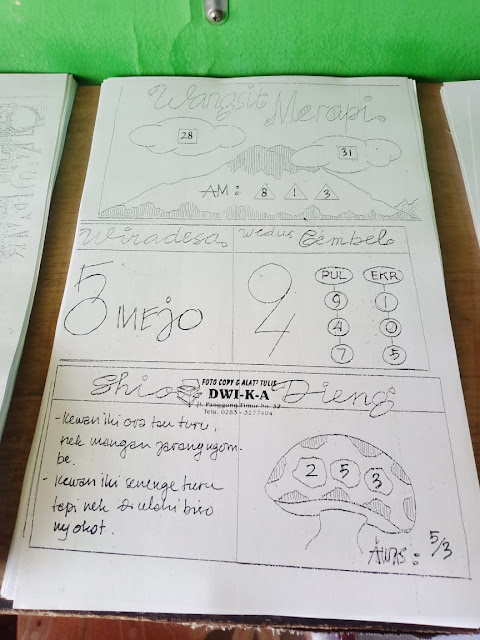 Wangsit Merapi.
28
31
AM : 8 1 3
Wiradesa.
Wedus Gembel.
5
3 MEJO
9
4
PUL EKR
9 1
4 0
7 5
Shio Dieng
FOTO COPY & ALAT² TULIS
DWI-K-A
Jl. Panggung Timur No. 32
Telp. 0283 - 3277404
- Kewan iki ora tau turu,
nek mangan jarang ngom-
be.
- Kewan iki senenge turu
tapi nek diulahi biso
nyokot.
2 5 3
AWAS : 5/3